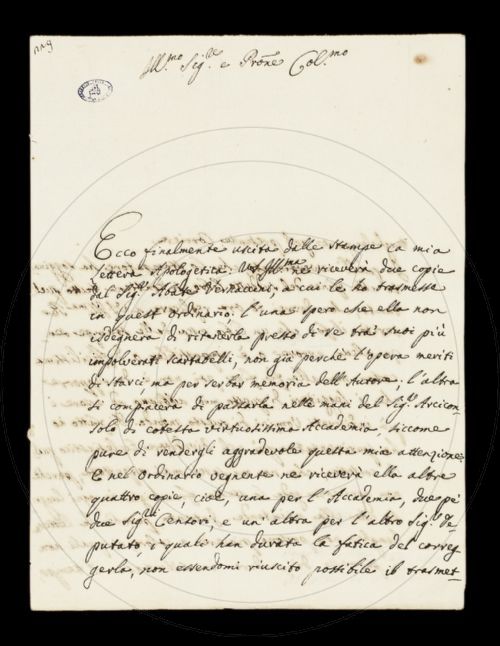 Ill.mo Sig.re e Prōne Col.mo
Ecco finalmente uscita dalle stampe la mia
lettera Apologetica: V.S. Ill.ma ne riceverà due copie
dal Sig.r Abate a cui le ho trasmesse
in quest'ordinario; l'una spero che ella non
isdegnerà di ritenerla presso di se tra i suoi più
impolverati scartabelli, non già perchè l'opera meriti
di starci ma per serbar memoria dell'Autore; l'altra
si compiacerà di passarla nelle mani del Sig.r Arcicon-
solo di cotesta virtuosissima Accademia, siccome
pure di rendergli aggradevole questa mia attenzione.
E nel ordinario vegnente ne riceverà ella altre
quattro copie, cioè, una per l'Accademia, due pe'
due Sig.ri Censori, e un'altra per l'altro Sig.r De-
putato i quali han durata la fatica del correg-
gerla, non essendomi riuscito possibile il trasmet-